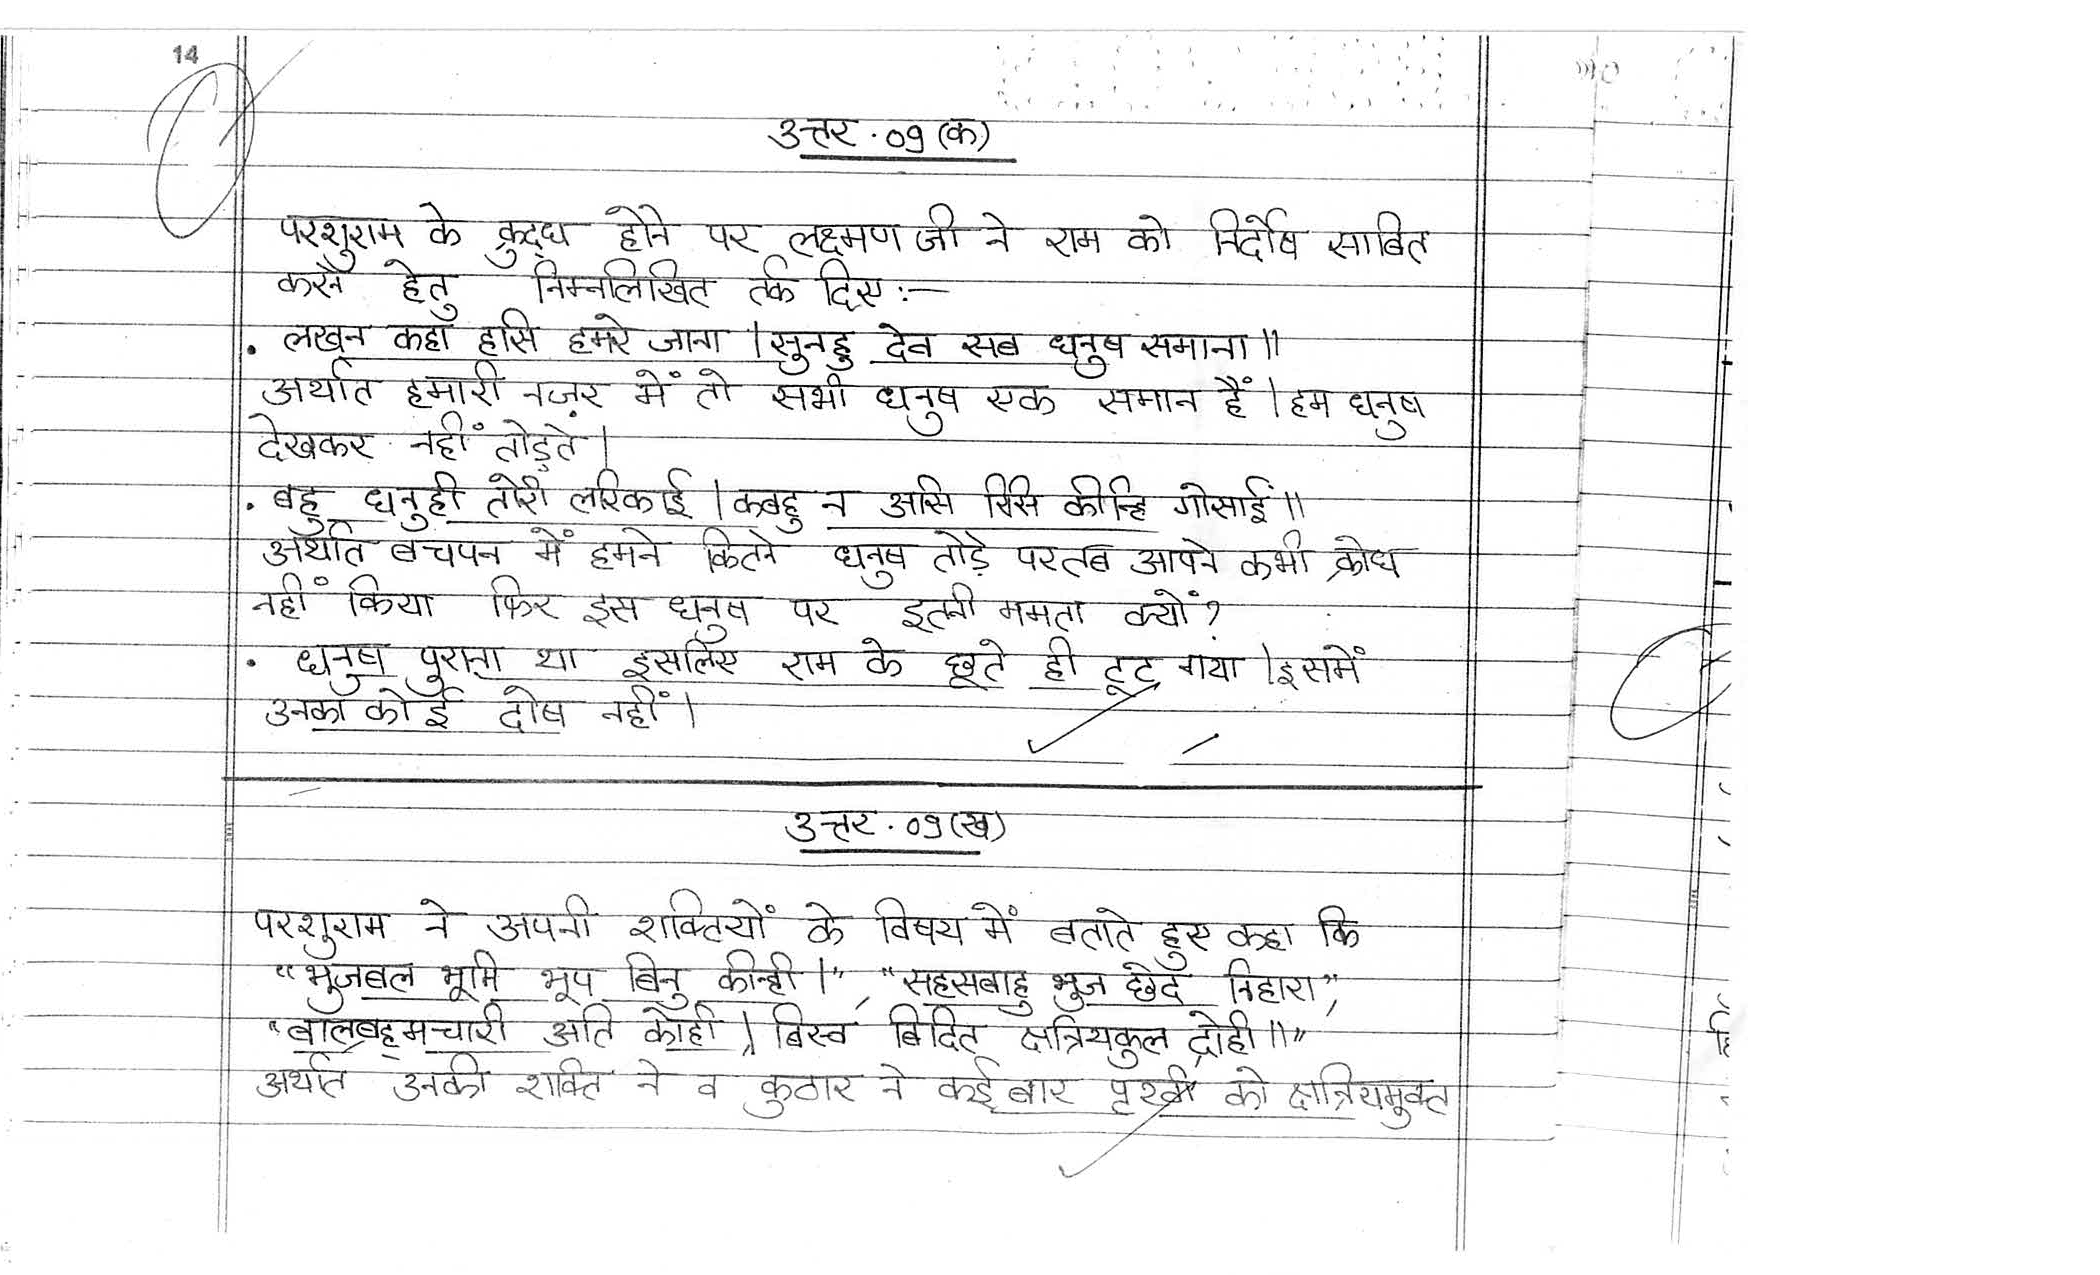 14
उत्तर.09(क)
परशुराम के क्रुद्ध होने पर लक्ष्मण जी ने राम को निर्दोष साबित
करने हेतु निम्नलिखित तर्क दिए:—
• लखन कहा हसि हमरे जाना। सुनहु देव सब धनुष समाना॥
अर्थात हमारी नज़र में तो सभी धनुष एक समान हैं। हम धनुष
देखकर नहीं तोड़ते।
• बहु धनुही तोरी लरिकाई। कबहु न असि रिसि कीन्हि गोसाईं॥
अर्थात बचपन में हमने कितने धनुष तोड़े पर तब आपने कभी क्रोध
नहीं किया फिर इस धनुष पर इतनी ममता क्यों?
• धनुष पुराना था इसलिए राम के छूते ही टूट गया। इसमें
उनका कोई दोष नहीं।
उत्तर.09(ख)
परशुराम ने अपनी शक्तियों के विषय में बताते हुए कहा कि
“भुजबल भूमि भूप बिनु कीन्ही।”, “सहसबाहु भुज छेद निहारा”,
“बालब्रह्मचारी अति कोही। बिस्व बिदित क्षत्रियकुल द्रोही॥”
अर्थात उनकी शक्ति ने व कुठार ने कई बार पृथ्वी को क्षत्रियमुक्त